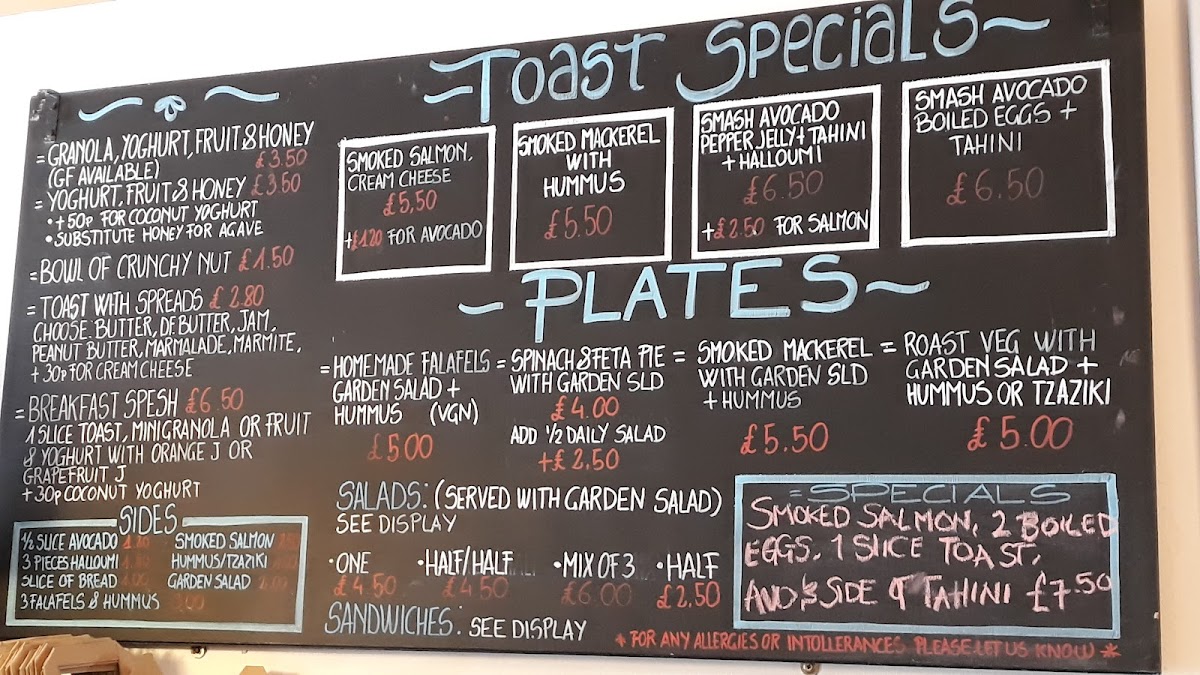 = GRANOLA, YOGHURT, FRUIT & HONEY
(GF AVAILABLE) £3.50
= YOGHURT, FRUIT & HONEY £3.50
• +50p FOR COCONUT YOGHURT
• SUBSTITUTE HONEY FOR AGAVE
= BOWL OF CRUNCHY NUT £1.50
= TOAST WITH SPREADS £2.80
CHOOSE: BUTTER, DF BUTTER, JAM,
PEANUT BUTTER, MARMALADE, MARMITE,
+ 30p FOR CREAM CHEESE
= BREAKFAST SPESH £6.50
1 SLICE TOAST, MINI GRANOLA OR FRUIT
& YOGHURT WITH ORANGE J OR
GRAPEFRUIT J
+30p COCONUT YOGHURT
SIDES
½ SLICE AVOCADO
3 PIECES HALLOUMI
SLICE OF BREAD
3 FALAFELS & HUMMUS 3.00
SMOKED SALMON
HUMMUS/TZAZIKI
GARDEN SALAD
~TOAST SPECIALS~
SMOKED SALMON,
CREAM CHEESE
£5,50
+£1.20 FOR AVOCADO
SMOKED MACKEREL
WITH
HUMMUS
£5.50
SMASH AVOCADO
PEPPER JELLY + TAHINI
+ HALLOUMI
£6.50
+£2.50 FOR SALMON
SMASH AVOCADO
BOILED EGGS +
TAHINI
£6.50
~PLATES~
= HOMEMADE FALAFELS
GARDEN SALAD +
HUMMUS (VGN)
£5.00
= SPINACH & FETA PIE
WITH GARDEN SLD
£4.00
ADD ½ DAILY SALAD
+£2.50
= SMOKED MACKEREL
WITH GARDEN SLD
+ HUMMUS
£5.50
= ROAST VEG WITH
GARDEN SALAD +
HUMMUS OR TZAZIKI
£5.00
SALADS: (SERVED WITH GARDEN SALAD)
SEE DISPLAY
• ONE • HALF/HALF • MIX OF 3 • HALF
£4.50 £4.50 £6.00 £2.50
SANDWICHES: SEE DISPLAY
= SPECIALS
SMOKED SALMON, 2 BOILED
EGGS, 1 SLICE TOAST,
AND SIDE TAHINI £7.50
* FOR ANY ALLERGIES OR INTOLLERANCES PLEASE LET US KNOW *